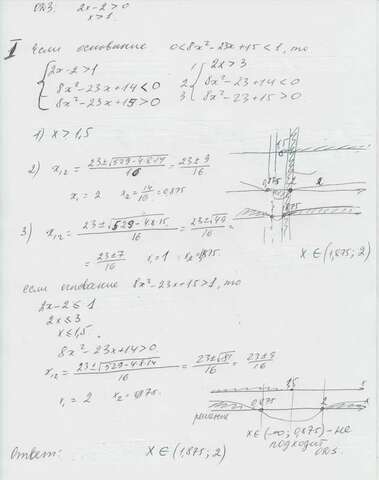 ОДЗ: 2x-2>0
x>1.
I Если основание 0<8x²-23x+15<1, то
{ 2x-2>1
8x²-23x+14<0
8x²-23x+15>0
1 { 2x>3
2 8x²-23x+14<0
3 8x²-23x+15>0
1) x>1,5
2) x₁₂ = (23±√(529-4·8·14))/16 = (23±9)/16
x₁=2 x₂=14/16=0,875
3) x₁₂ = (23±√(529-4·8·15))/16 = (23±√49)/16 =
= (23±7)/16 x₁=1 x₂=1,875.
1,5
0,875 2
1 1,875
x∈(1,875; 2)
если основание 8x²-23x+15>1, то
2x-2≤1
2x≤3
x≤1,5.
8x²-23x+14>0
x₁₂ = (23±√(529-4·8·14))/16 = (23±√81)/16 = (23±9)/16
x₁=2 x₂=0,875.
1,5 x
0,875 2 x
решение
x∈(-∞; 0,875) - не
подходит
ОДЗ.
Ответ: x∈(1,875; 2)